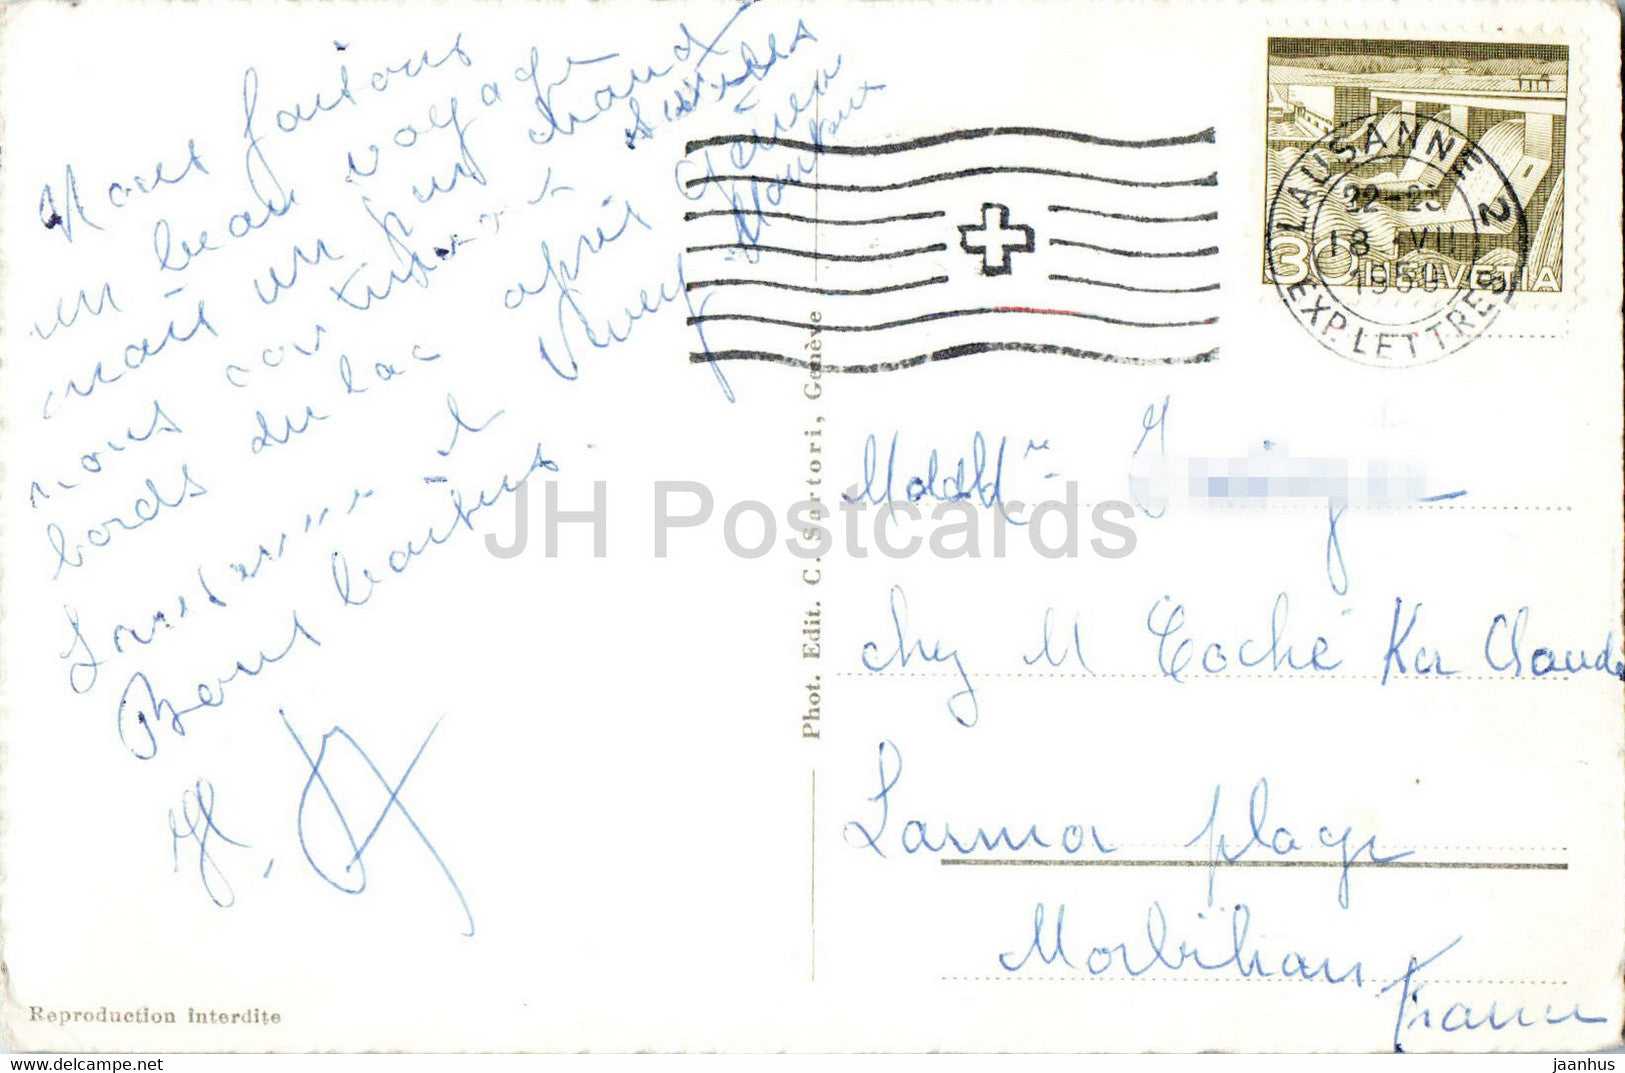 Nous faisons
un beau voyage
mais un peu chaud
nous continuons
bords du lac après Genève
Vevey Montreux
Bons baisers.
Reproduction interdite
Phot. Edit. C. Sartori, Genève
LAUSANNE 2
22-23
18 VII
1959
EXP. LETTRES
30 HELVETIA
chez M Coché Ker Claude
Larmor plage
Morbihan
France
JH Postcards
jaanhus